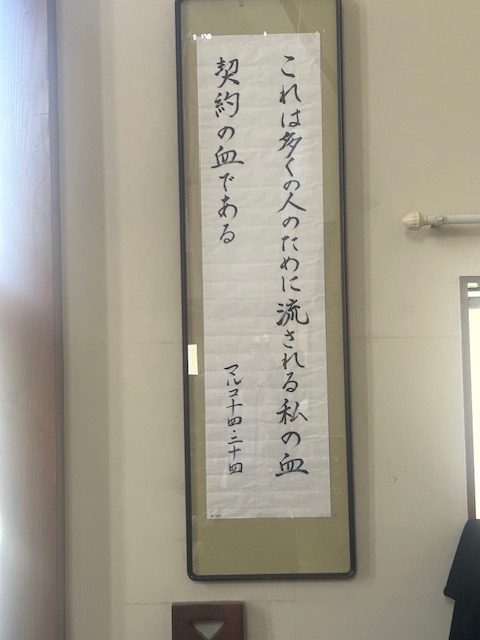 これは多くの人のために流される私の血
契約の血である
マルコ十四・二十四